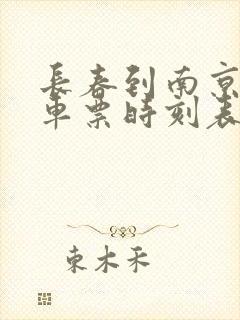 長春到南京
車票時刻表
東木禾